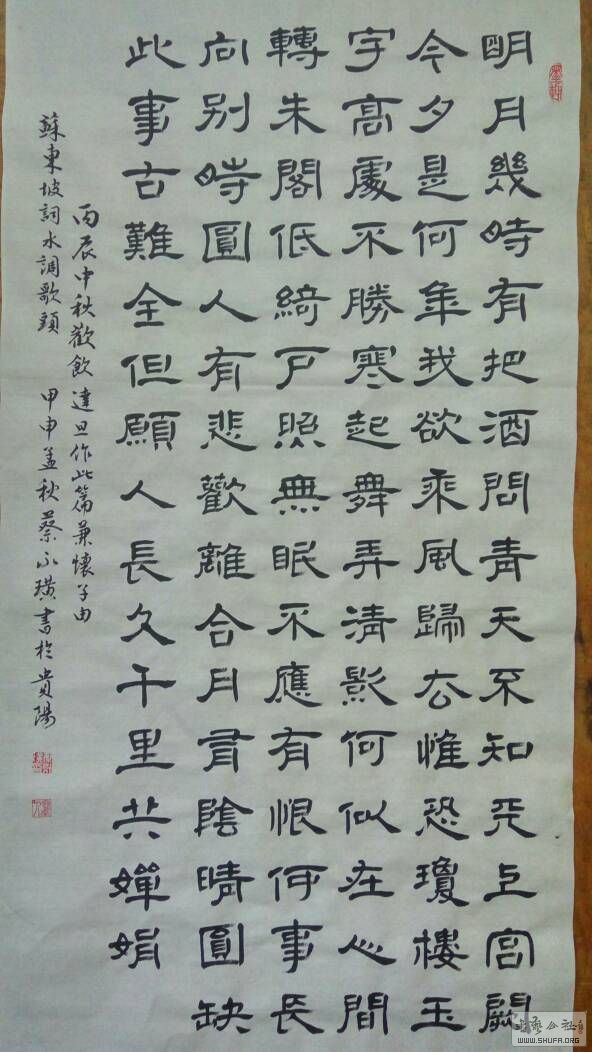 明月幾時有把酒問青天不知天上宮闕
今夕是何年我欲乘風歸去惟恐瓊樓玉
宇高處不勝寒起舞弄清影何似在心間
轉朱閣低綺戶照無眠不應有恨何事長
向别時圓人有悲歡離合月有陰晴圓缺
此事古難全但願人長久千里共嬋娟
丙辰中秋歡飲達旦作此篇兼懷子由
蘇東坡詞水調歌頭 甲申孟秋蔡永璜書於貴陽
書藝公社
WWW.SHUFA.ORG